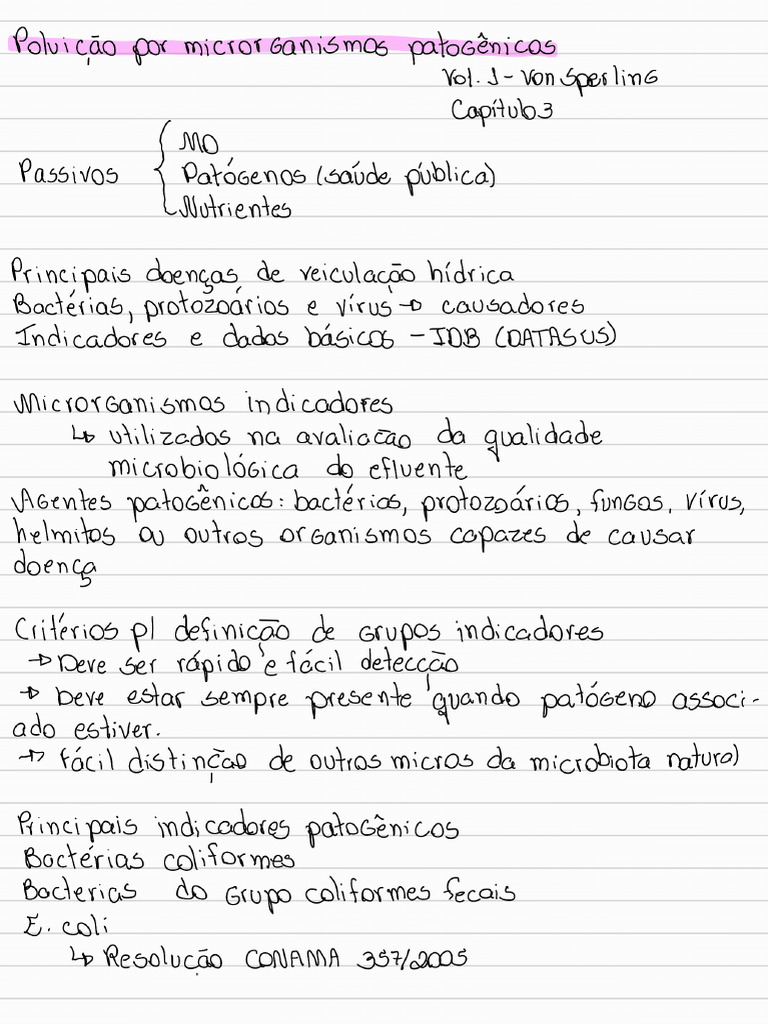 Poluição por microrganismos patogênicos
Vol. 1 - Von Sperling
Capítulo 3
MO
Passivos { Patógenos (saúde pública)
Nutrientes
Principais doenças de veiculação hídrica
Bactérias, protozoários e vírus → causadores
Indicadores e dados básicos - IDB (DATASUS)
Microrganismos indicadores
↳ utilizados na avaliação da qualidade
microbiológica do efluente
Agentes patogênicos: bactérias, protozoários, fungos, vírus,
helmitos ou outros organismos capazes de causar
doença
Critérios p/ definição de grupos indicadores
→ Deve ser rápido e fácil detecção
→ Deve estar sempre presente quando patógeno associ-
ado estiver.
→ fácil distinção de outros micros da microbiota natural
Principais indicadores patogênicos
Bactérias coliformes
Bacterias do grupo coliformes fecais
E. coli
↳ Resolução CONAMA 357/2005